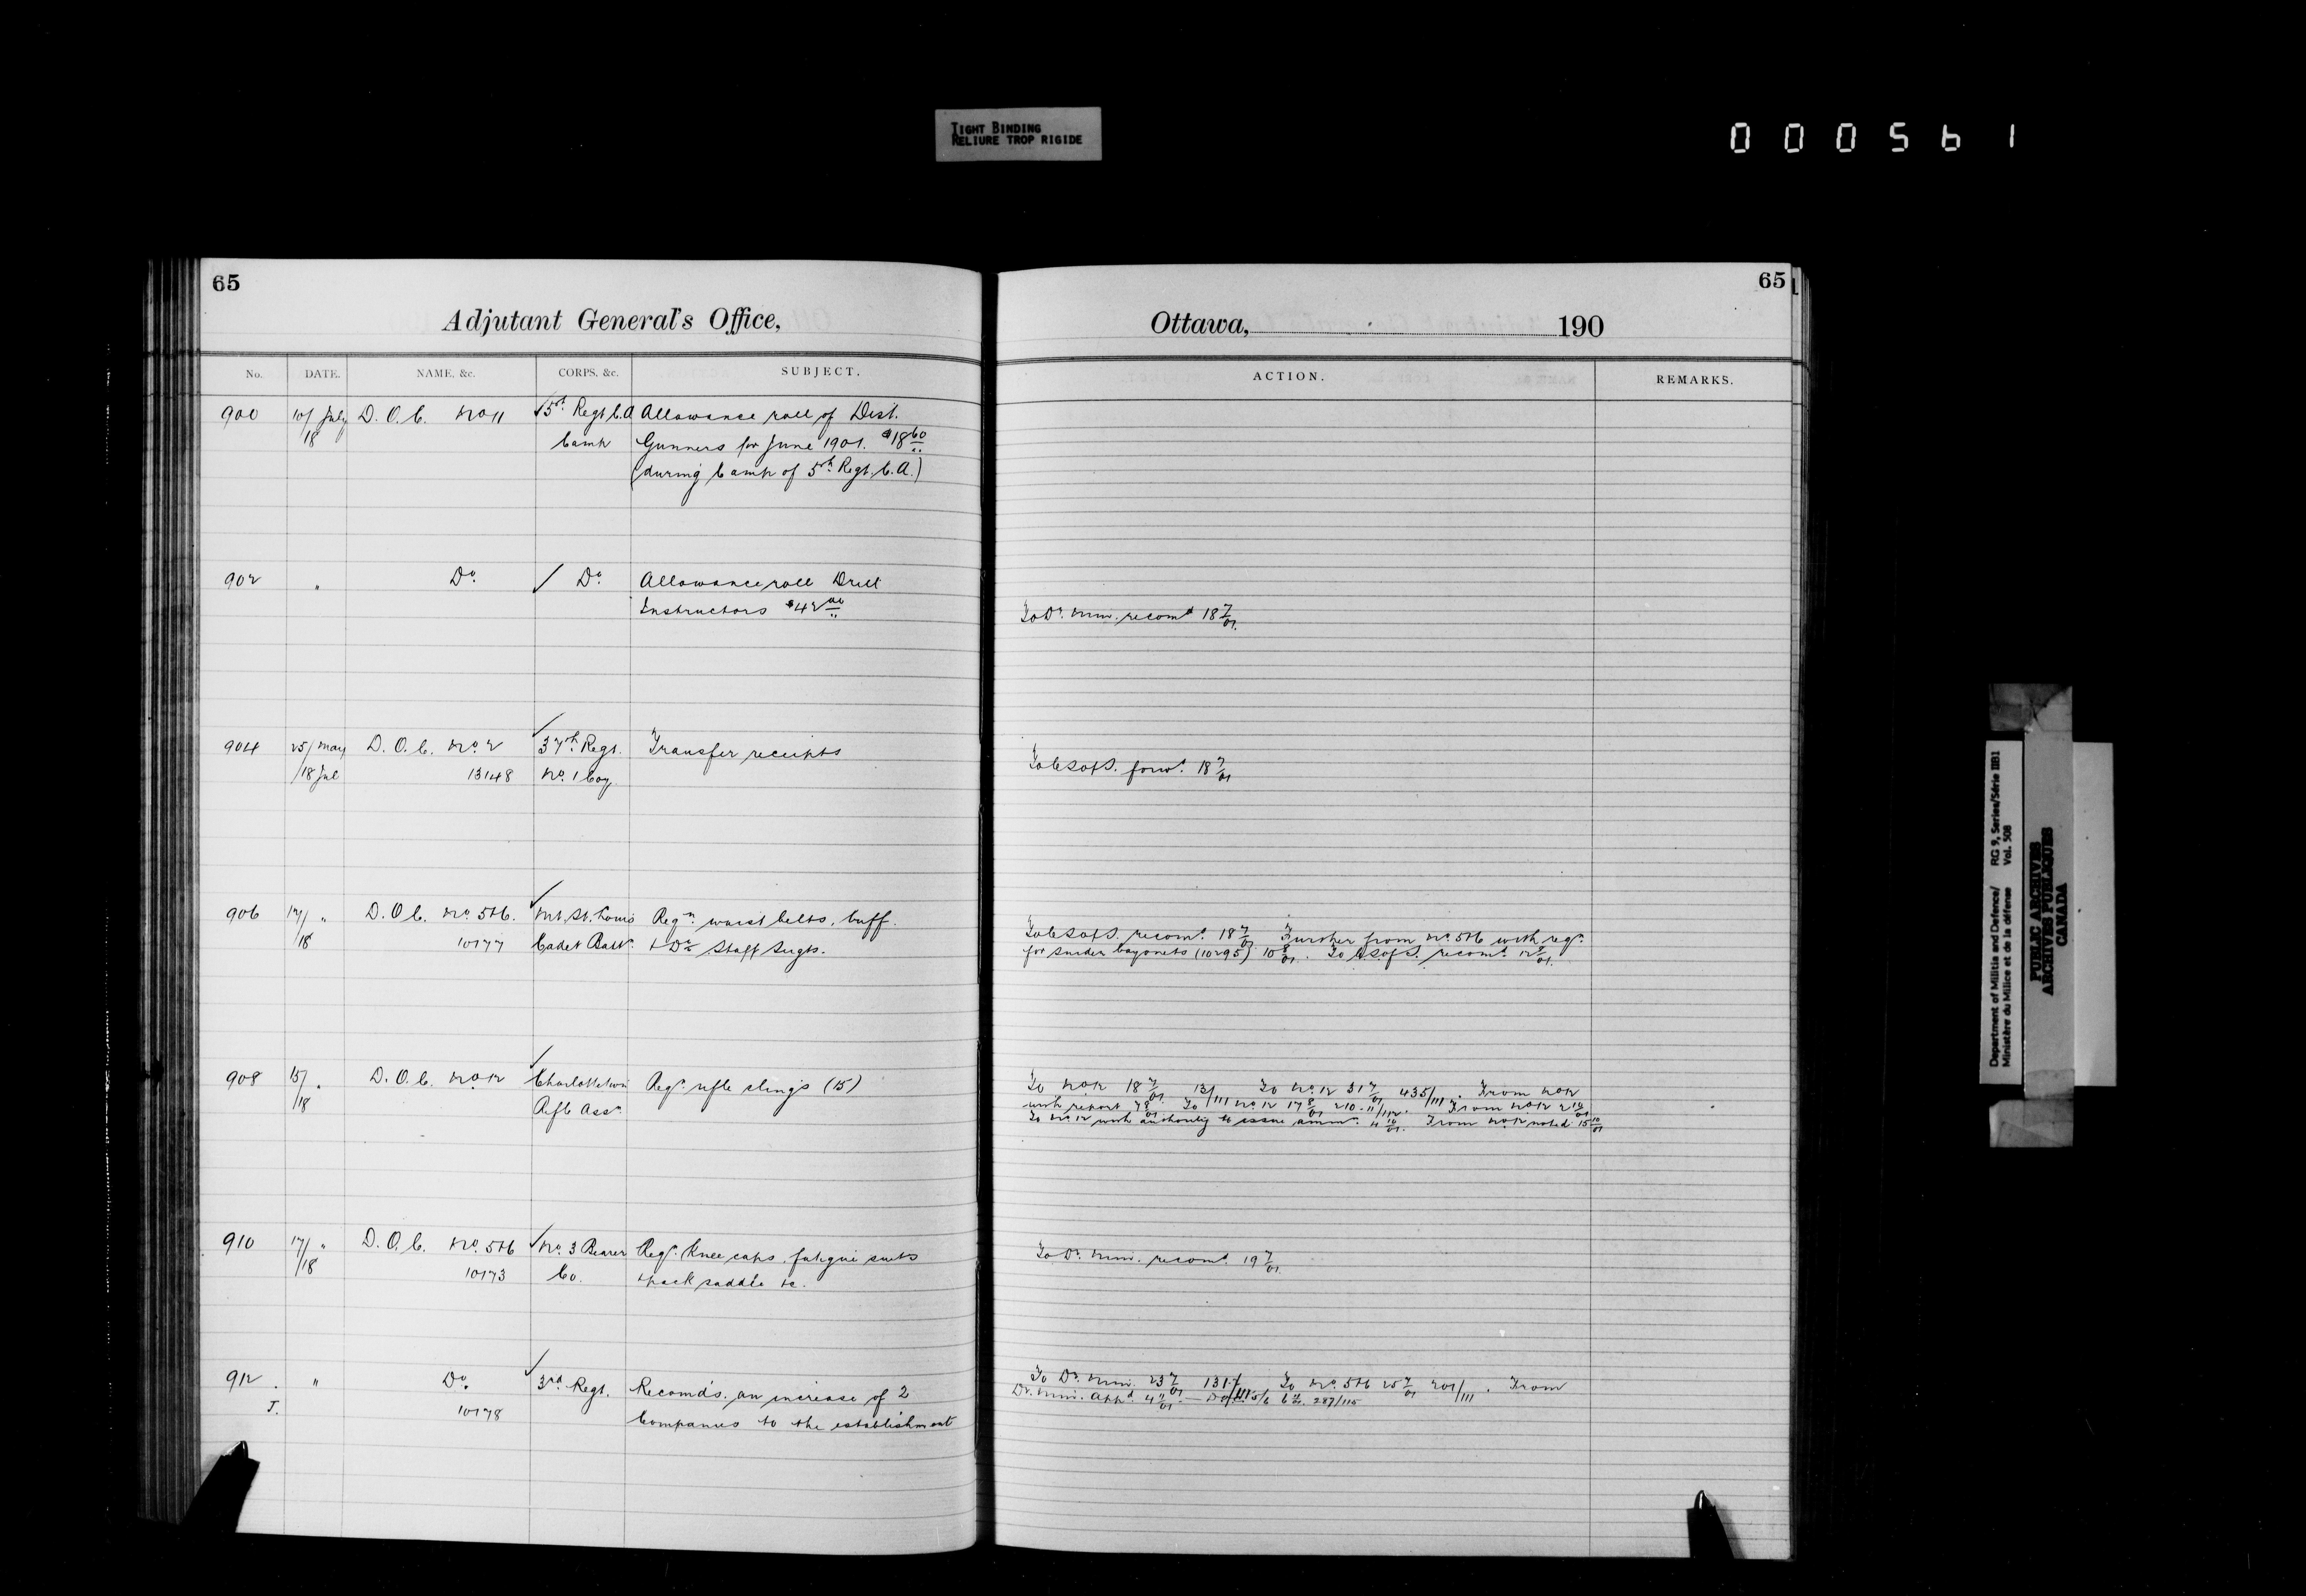 TIGHT BINDING
RELIURE TROP RIGIDE
000561
65
Adjutant General's Office,
No. DATE. NAME, &c. CORPS, &c. SUBJECT.
900 10/ July D. O. C. No 11 ✓5th Regt C.A Allowance roll of Dist.
/18 Camp Gunners for June 1901. $18 60
(during Camp of 5th Regt. C. A.)
902 " Do. ✓ Do. Allowance roll Drill
Instructors $42 00
904 25/ May D. O. C. No. 2 ✓37th Regt. Transfer receipts
/18 Jul 13148 No. 1 Coy.
906 17/ " D. O. C. No. 5&6. ✓Mt. St. Louis Reqn. waist belts, buff
/18 10177 Cadet Battn. & Do. Staff Sergts.
908 15/ " D. O. C. No. 12 ✓Charlottetown Reqn. rifle slings (15)
/18 Rifle Assn.
910 17/ " D. O. C. No. 5&6 ✓No. 3 Bearer Reqn. Knee caps, fatigue suits
/18 10173 Co. & pack saddle &c.
912 " Do. ✓3rd Regt. Recomds. an increase of 2
J. 10178 Companies to the establishment
65
Ottawa, 190
ACTION. REMARKS.
To Dr. Min. recomd 18 7/01.
To C S of S. forwd. 18 7/01
To C S of S. recomd. 18 7/01 Further from No. 5&6 with reqn.
for snider bayonets (10295) 10 8/01. To C.S of S. recomd. 12 /01.
To No 12 18 7/01 13/111 To No. 12 31 7/01 435/111. From No 12
with report 7 8/01 To No. 12 17 8/01 210-11/112. From No 12 2 10/01
To No. 12 with authority to issue ammn. 4 10/01. From No 12 noted 15 10/01
To Dr. Min. recomd. 19 7/01.
To Dr. Min. 23 7/01 131 To No. 5&6 25 7/01 201/111. From
Dr. Min. appd. 4 /01 — 5/6 287/115
Department of Militia and Defence/ RG 9, Series/Série IIB1
Ministère du Milice et de la défense Vol. 508
PUBLIC ARCHIVES
ARCHIVES PUBLIQUES
CANADA